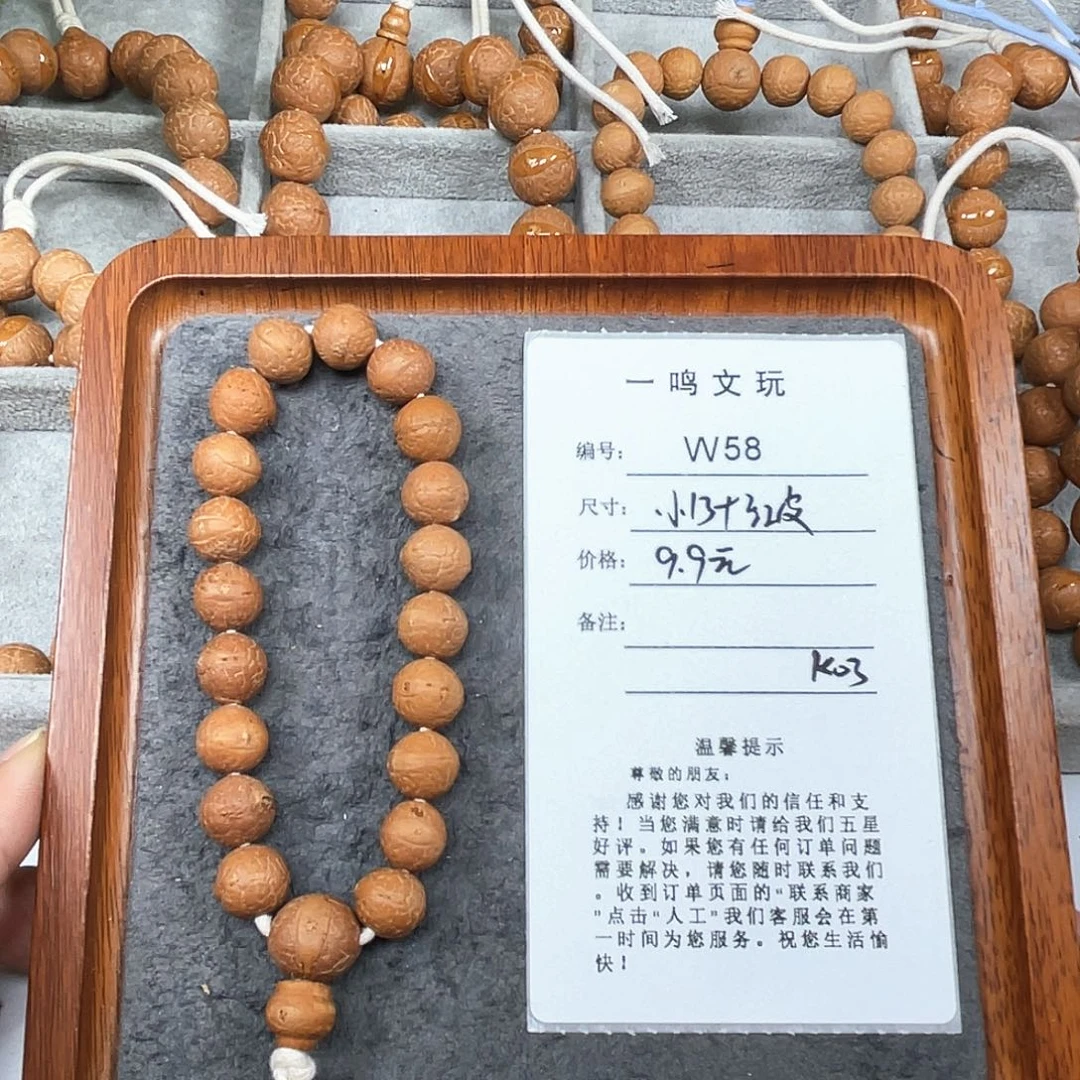 一鸣文玩
编号: W58
尺寸: 小13+红皮
价格: 9.9元
备注:
K03
温馨提示
尊敬的朋友:
感谢您对我们的信任和支
持！当您满意时请给我们五星
好评。如果您有任何订单问题
需要解决，请您随时联系我们
。收到订单页面的"联系商家
"点击"人工"我们客服会在第
一时间为您服务。祝您生活愉
快！